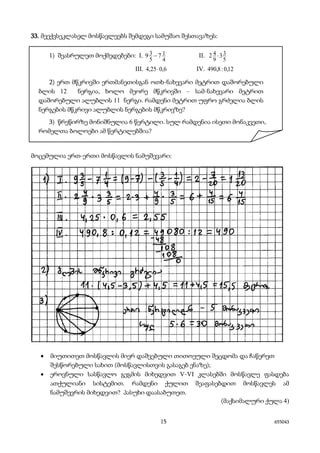 33. მეექვსეკლასელ მოსწავლეებს შემდეგი სამუშაო შესთავაზეს:
1) შეასრულეთ მოქმედებები: I. 9 3/5 − 7 1/4 II. 2 4/9 · 3 3/5
III. 4,25 · 0,6 IV. 490,8 : 0,12
2) ერთ მწკრივში ერთმანეთისგან ოთხ-ნახევარი მეტრით დაშორებული
ბლის 12 ნერგია, ხოლო მეორე მწკრივში – სამ-ნახევარი მეტრით
დაშორებული ალუბლის 11 ნერგი. რამდენი მეტრით უფრო გრძელია ბლის
ნერგების მწკრივი ალუბლის ნერგების მწკრივზე?
3) წრეწირზე მონიშნულია 6 წერტილი. სულ რამდენია ისეთი მონაკვეთი,
რომელთა ბოლოები ამ წერტილებშია?
მოცემულია ერთ-ერთი მოსწავლის ნამუშევარი:
1) I. 9 3/5 − 7 1/4 = (9−7) − (3/5 − 1/4) = 2 − 7/20 = 1 13/20
II. 2 4/9 · 3 3/5 = 2·3 + 4/9 · 3/5 = 6 + 4/15 = 6 4/15
III. 4,25 · 0,6 = 2,55
IV. 490,8 : 0,12 = 49080 : 12 = 490
−48
108
108
0
2) ბლის მწკრივი გრძელია
11 · (4,5 − 3,5) + 4,5 = 11 + 4,5 = 15,5 მეტრით
3) ერთი წერტილიდან − 5 მონაკვეთი
სულ 5·6 = 30 მონაკვეთი
• მიუთითეთ მოსწავლის მიერ დაშვებული თითოეული შეცდომა და ჩაწერეთ
შესწორებული სახით (მოსწავლისთვის გასაგებ ენაზე);
• ეროვნული სასწავლო გეგმის მიხედვით V-VI კლასებში მოსწავლე ფასდება
ათქულიანი სისტემით. რამდენი ქულით შეაფასებდით მოსწავლეს ამ
ნამუშევრის მიხედვით? პასუხი დაასაბუთეთ.
(მაქსიმალური ქულა 4)
15